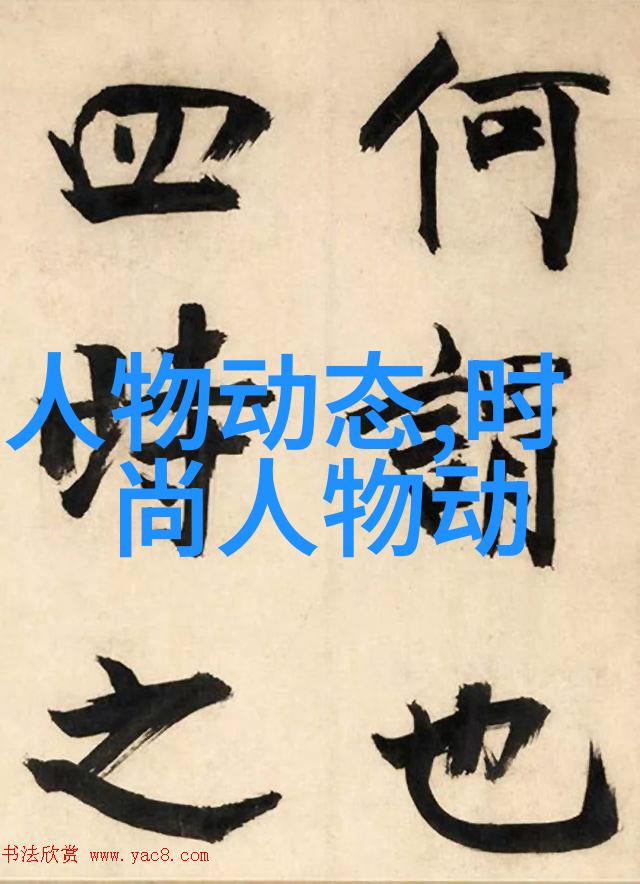 何謂也
四時之
人物动态,时
尚人物动
书法欣赏 www.yac8.com